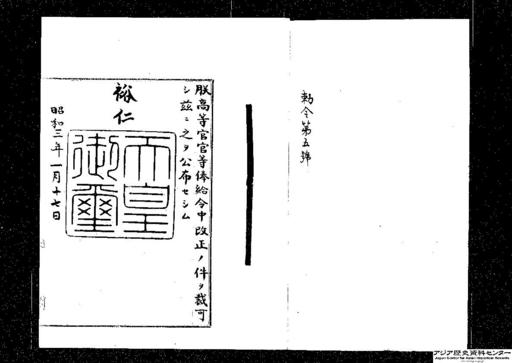 勅令第五號
朕高等官官等俸給令中改正ノ件ヲ裁可
シ茲ニ之ヲ公布セシム
裕仁
天皇
御璽
昭和三年一月十七日
アジア歴史資料センター
Japan Center for Asian Historical Records